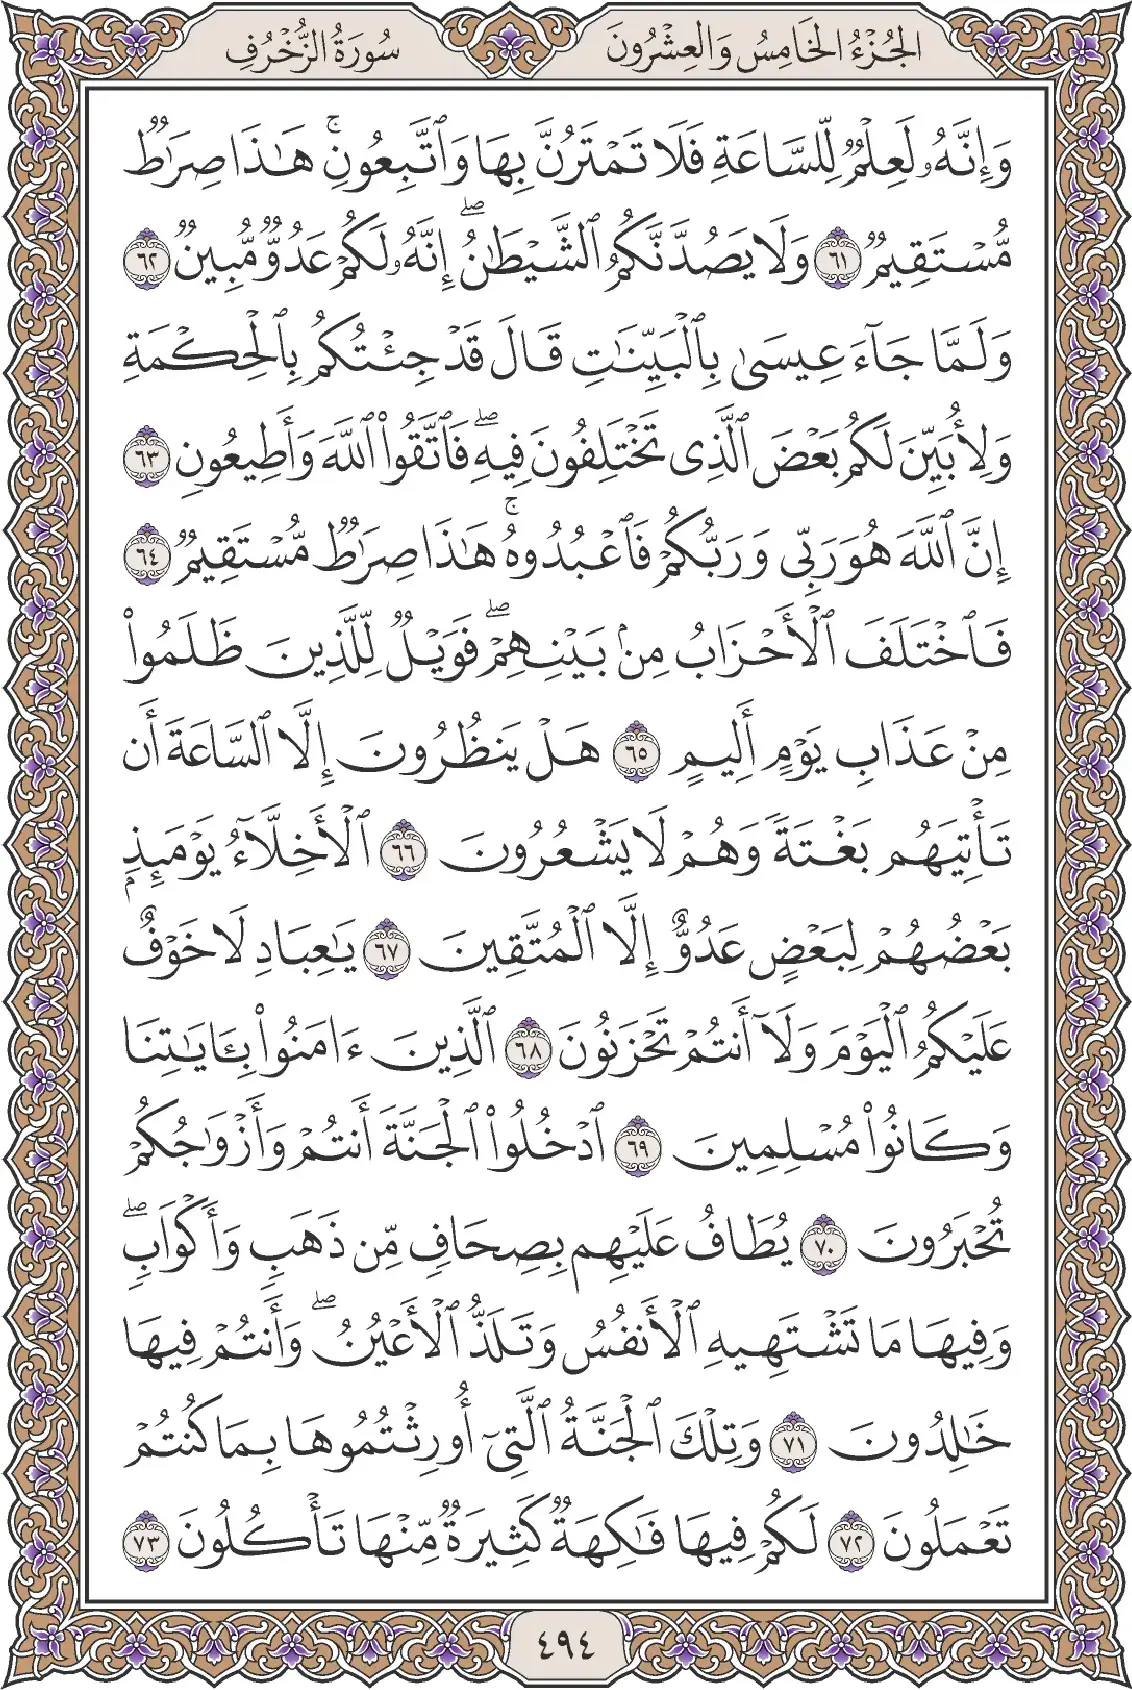 الجُزْءُ الخَامِسُ وَالعِشْرُونَ
سُورَةُ الزُّخْرُفِ
وَإِنَّهُۥ لَعِلْمٌ لِّلسَّاعَةِ فَلَا تَمْتَرُنَّ بِهَا وَٱتَّبِعُونِۚ هَٰذَا صِرَٰطٌ
مُّسْتَقِيمٌ ٦١ وَلَا يَصُدَّنَّكُمُ ٱلشَّيْطَٰنُۖ إِنَّهُۥ لَكُمْ عَدُوٌّ مُّبِينٌ ٦٢
وَلَمَّا جَآءَ عِيسَىٰ بِٱلْبَيِّنَٰتِ قَالَ قَدْ جِئْتُكُم بِٱلْحِكْمَةِ
وَلِأُبَيِّنَ لَكُم بَعْضَ ٱلَّذِى تَخْتَلِفُونَ فِيهِۖ فَٱتَّقُوا۟ ٱللَّهَ وَأَطِيعُونِ ٦٣
إِنَّ ٱللَّهَ هُوَ رَبِّى وَرَبُّكُمْ فَٱعْبُدُوهُۚ هَٰذَا صِرَٰطٌ مُّسْتَقِيمٌ ٦٤
فَٱخْتَلَفَ ٱلْأَحْزَابُ مِنۢ بَيْنِهِمْۖ فَوَيْلٌ لِّلَّذِينَ ظَلَمُوا۟
مِنْ عَذَابِ يَوْمٍ أَلِيمٍ ٦٥ هَلْ يَنظُرُونَ إِلَّا ٱلسَّاعَةَ أَن
تَأْتِيَهُم بَغْتَةً وَهُمْ لَا يَشْعُرُونَ ٦٦ ٱلْأَخِلَّآءُ يَوْمَئِذٍۭ
بَعْضُهُمْ لِبَعْضٍ عَدُوٌّ إِلَّا ٱلْمُتَّقِينَ ٦٧ يَٰعِبَادِ لَا خَوْفٌ
عَلَيْكُمُ ٱلْيَوْمَ وَلَآ أَنتُمْ تَحْزَنُونَ ٦٨ ٱلَّذِينَ ءَامَنُوا۟ بِـَٔايَٰتِنَا
وَكَانُوا۟ مُسْلِمِينَ ٦٩ ٱدْخُلُوا۟ ٱلْجَنَّةَ أَنتُمْ وَأَزْوَٰجُكُمْ
تُحْبَرُونَ ٧٠ يُطَافُ عَلَيْهِم بِصِحَافٍ مِّن ذَهَبٍ وَأَكْوَابٍۖ
وَفِيهَا مَا تَشْتَهِيهِ ٱلْأَنفُسُ وَتَلَذُّ ٱلْأَعْيُنُۖ وَأَنتُمْ فِيهَا
خَٰلِدُونَ ٧١ وَتِلْكَ ٱلْجَنَّةُ ٱلَّتِىٓ أُورِثْتُمُوهَا بِمَا كُنتُمْ
تَعْمَلُونَ ٧٢ لَكُمْ فِيهَا فَٰكِهَةٌ كَثِيرَةٌ مِّنْهَا تَأْكُلُونَ ٧٣
٤٩٤